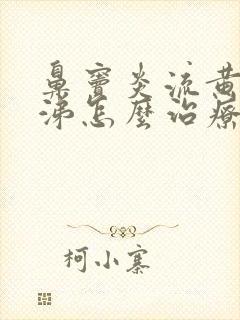 鼻窦炎流黄
涕怎麽治療
柯小寨